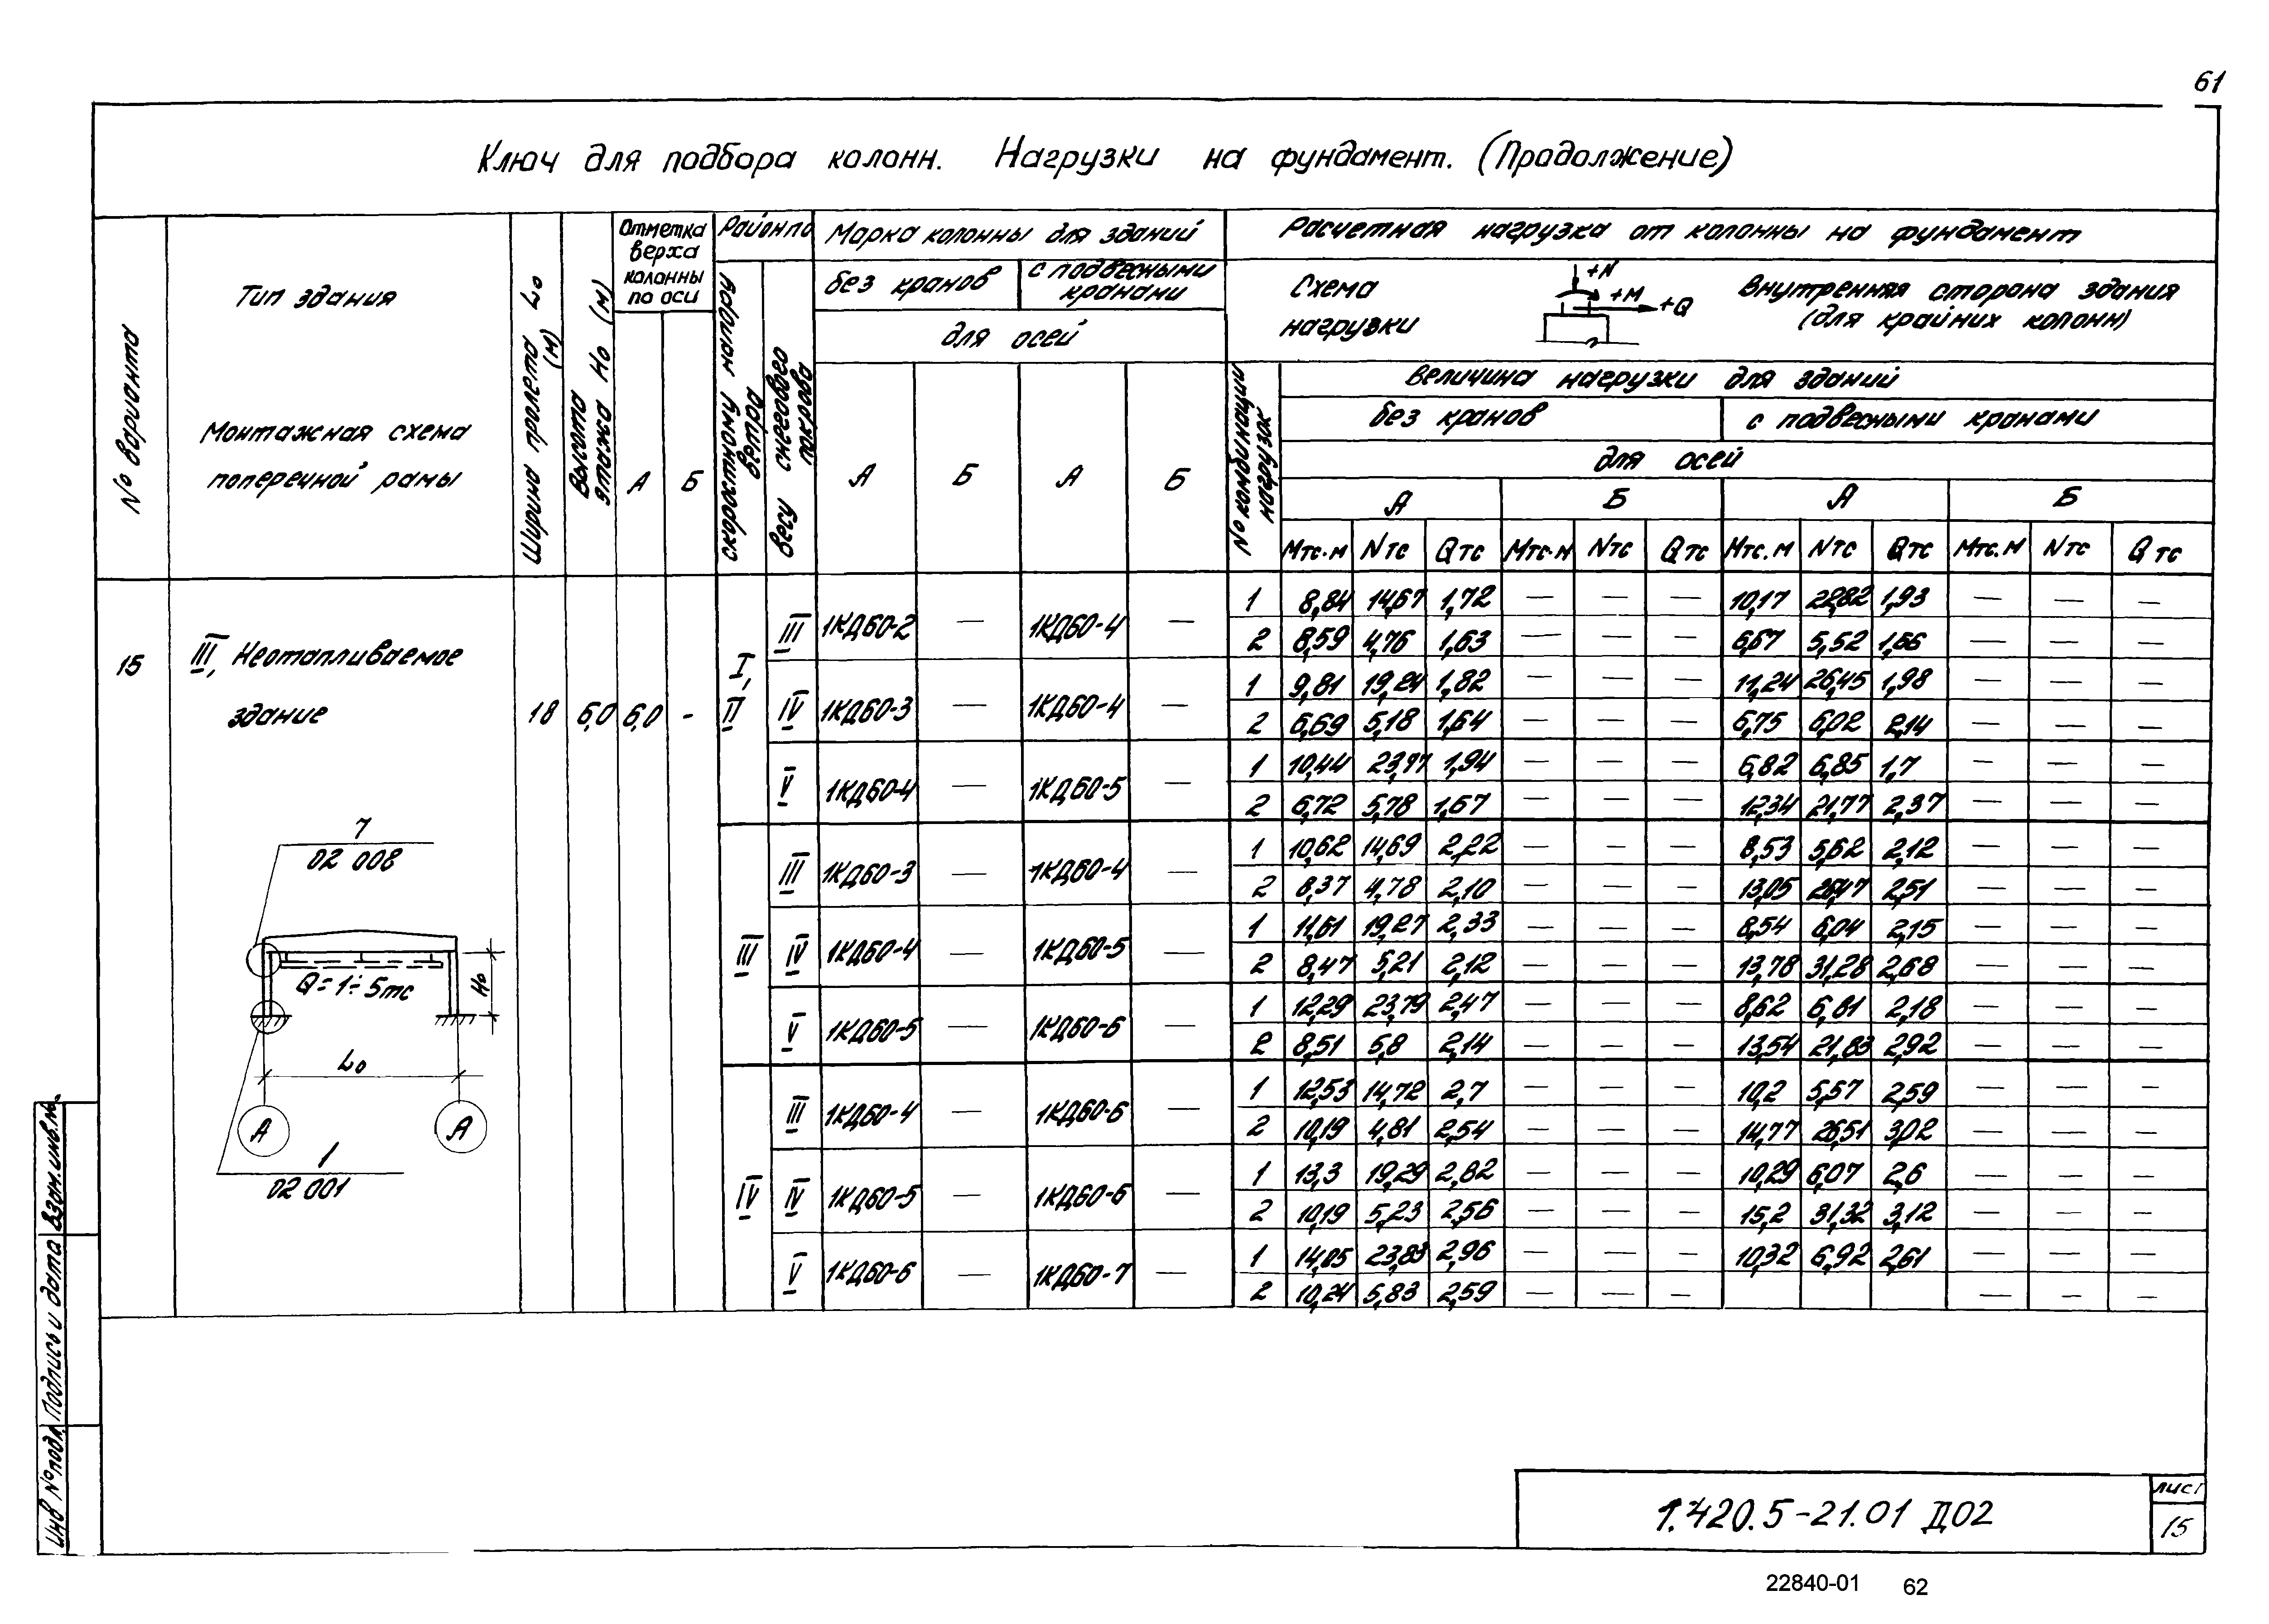 61
Ключ для подбора колонн. Нагрузки на фундамент. (Продолжение)
№ варианта
Тип здания
Монтажная схема
поперечной рамы
Ширина пролета L₀ (м)
Высота этажа H₀ (м)
Отметка
верха
колонны
по оси
А Б
Район по
скоростному напору ветра
весу снегового покрова
Марка колонны для зданий
без кранов
с подвесными
кранами
для осей
А Б А Б
Расчетная нагрузка от колонны на фундамент
Схема
нагрузки
+N
+M
+Q
Внутренняя сторона здания
(для крайних колонн)
№ комбинации нагрузок
Величина нагрузки для зданий
без кранов с подвесными кранами
для осей
А Б А Б
Мтс.м Nтс Qтс Мтс.м Nтс Qтс Мтс.м Nтс Qтс Мтс.м Nтс Qтс
15
III, Неотапливаемое
здание
18 6,0 6,0 -
I, II
III 1КД60-2 — 1КД60-4 —
1 8,84 14,67 1,72 — — — 10,17 22,82 1,93 — — —
2 8,59 4,76 1,63 — — — 6,67 5,52 1,66 — — —
IV 1КД60-3 — 1КД60-4 —
1 9,81 19,24 1,82 — — — 11,24 26,45 1,98 — — —
2 6,69 5,18 1,64 — — — 6,75 6,02 2,14 — — —
V 1КД60-4 — 1КД60-5 —
1 10,44 23,77 1,94 — — — 6,82 6,85 1,7 — — —
2 6,72 5,78 1,67 — — — 12,34 21,77 2,37 — — —
III
III 1КД60-3 — 1КД60-4 —
1 10,62 14,69 2,22 — — — 8,53 5,62 2,12 — — —
2 8,37 4,78 2,10 — — — 13,05 26,47 2,51 — — —
IV 1КД60-4 — 1КД60-5 —
1 11,61 19,27 2,33 — — — 8,54 6,04 2,15 — — —
2 8,47 5,21 2,12 — — — 13,78 31,28 2,68 — — —
V 1КД60-5 — 1КД60-6 —
1 12,29 23,79 2,47 — — — 8,62 6,81 2,18 — — —
2 8,51 5,8 2,14 — — — 13,54 21,83 2,92 — — —
IV
III 1КД60-4 — 1КД60-6 —
1 12,53 14,72 2,7 — — — 10,2 5,57 2,59 — — —
2 10,19 4,81 2,54 — — — 14,77 26,51 3,02 — — —
IV 1КД60-5 — 1КД60-6 —
1 13,3 19,29 2,82 — — — 10,29 6,07 2,6 — — —
2 10,19 5,23 2,56 — — — 15,2 31,32 3,12 — — —
V 1КД60-6 — 1КД60-7 —
1 14,05 23,83 2,96 — — — 10,32 6,92 2,61 — — —
2 10,24 5,83 2,59 — — — — — —
7
02 008
Q=1÷5тс
H₀
L₀
А А
1
02 001
Взам.инв.№
Подпись и дата
Инв №подл.
1.420.5-21.01 Д02
лист
15
22840-01 62